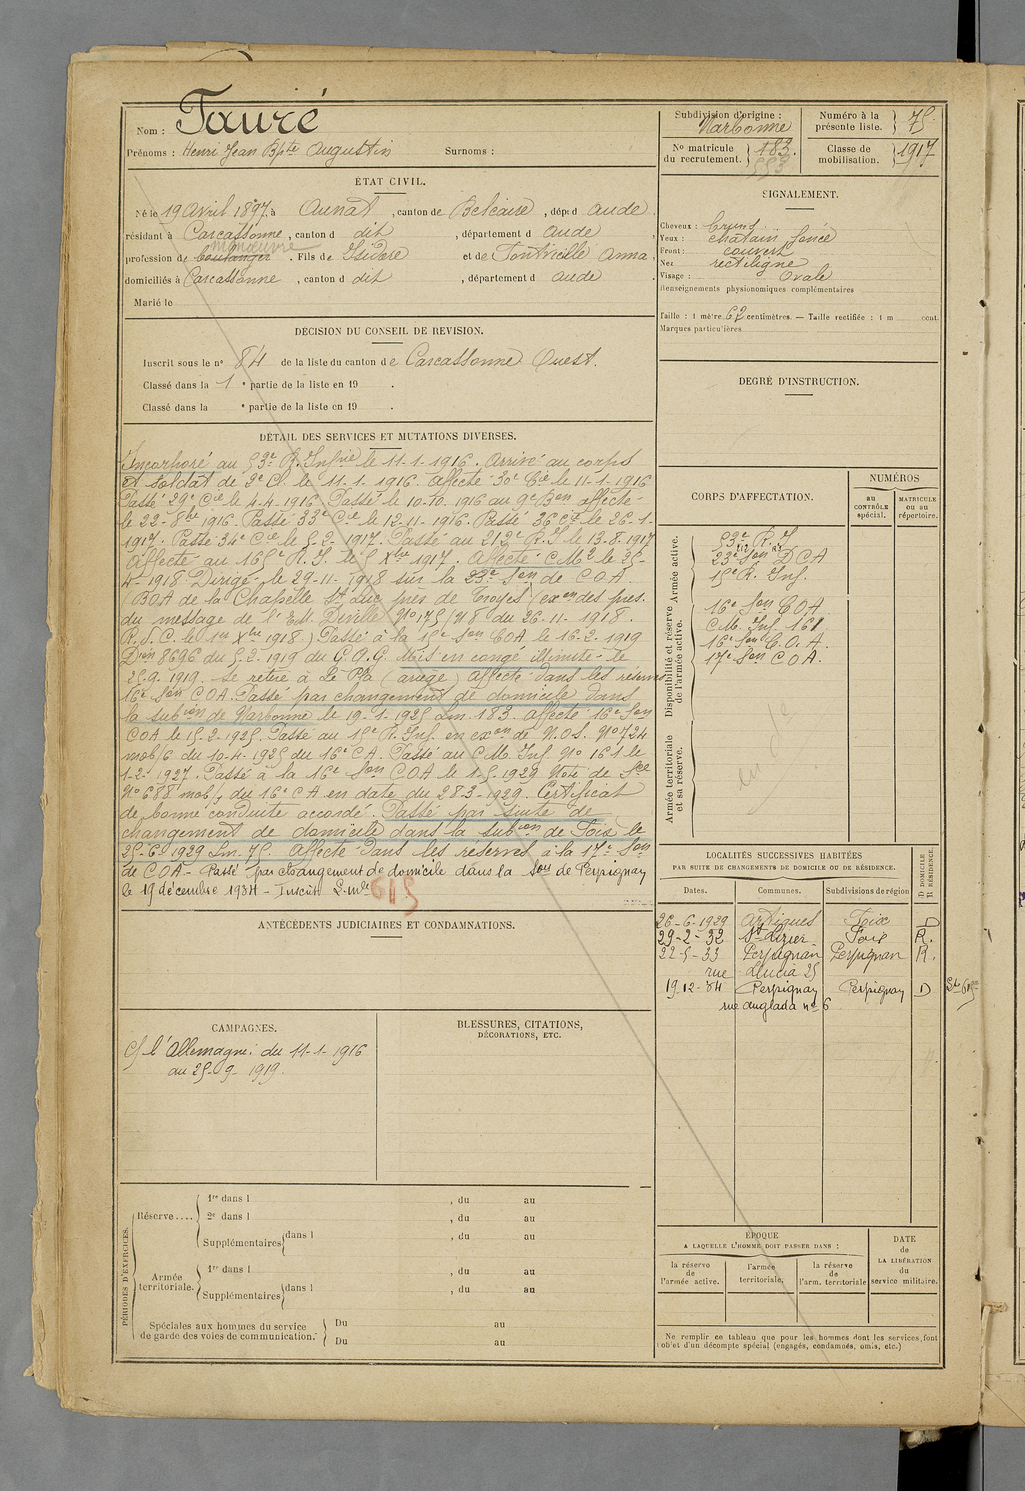 Nom : Fauré
Prénoms : Henri Jean Bpte Augustin Surnoms :
Subdivision d'origine : Narbonne
Numéro à la présente liste. 75
No matricule du recrutement. 183.
553
Classe de mobilisation. 1917
ÉTAT CIVIL.
Né le 19 Avril 1897, à Aunat, canton de Belcaire, dép. d Aude
résidant à Carcassonne, canton d dit, département d Aude
manœuvre
profession de boulanger. Fils de Isidore et de Fontvieille Anna,
domiciliés à Carcassonne, canton d dit, département d Aude
Marié le
SIGNALEMENT.
Cheveux : bruns
Yeux : chatain foncé
Front : couvert
Nez rectiligne
Visage : Ovale
Renseignements physionomiques complémentaires
Taille : 1 mètre 62 centimètres. — Taille rectifiée : 1 m cent.
Marques particulières
DÉCISION DU CONSEIL DE REVISION.
Inscrit sous le n° 84 de la liste du canton de Carcassonne Ouest.
Classé dans la 1 e partie de la liste en 19 .
Classé dans la e partie de la liste en 19 .
DEGRÉ D'INSTRUCTION.
DÉTAIL DES SERVICES ET MUTATIONS DIVERSES.
Incorporé au 53e R. Infrie le 11-1-1916. Arrivé au corps
et soldat de 2e Cl. le 11-1-1916. Affecté 30e Cie le 11-1-1916
Passé 29e Cie le 4-4-1916. Passé le 10-10-1916 au 9e Bon affecté
le 22-8bre 1916. Passé 33e Cie le 12-11-1916. Passé 36 Cie le 26-1-
1917. Passé 34e Cie le 5-2-1917. Passé au 212e R.I. le 13-8-1917
Affecté au 165e R.I. le 5 Xbre 1917. Affecté C.M.2 le 25-
4-1918 Dirigé le 29-11-1918 sur la 23e Son de C.O.A.
(BOA de la Chapelle St Luc près de Troyes) (exon des pres.
du message de l'E.M. Divelle No 175/118 du 26-11-1918.
R.S.C. le 1er Xbre 1918) Passé à la 15e Son COA le 16-2-1919
Don 8696 du 5-2-1919 du G.Q.G. Mis en congé illimité le
25-9-1919. Se retire à Le Pla (ariège) Affecté dans les réserves
16e Son C.O.A. Passé par changement de domicile dans
la subion de Narbonne le 19-1-1925 Lm.183. Affecté 16e Son
COA le 15-2-1925. Passé au 15e R. Inf. en exon de N.O.S. No 724
mob/6 du 10-4-1925 du 16e C.A. Passé au C.M. Inf. No 161 le
1-2-1927. Passé à la 16e Son COA le 1-5-1929 Note de Sce
No 688 mob/4 du 16e C A en date du 28-3-1929. Certificat
de bonne conduite accordé. Passé par suite de
changement de domicile dans la subion de Foix le
25-6-1929 Lm. 75. Affecté dans les réserves à la 17e Son
de C.O.A - Passé par changement de domicile dans la Son de Perpignan
le 19 décembre 1934 - Inscrit L. mle 615
CORPS D'AFFECTATION.
NUMÉROS
au CONTRÔLE spécial.
MATRICULE ou au répertoire.
Armée active.
53e R.I
23e Son DCA
15e R. Inf.
Disponibilité et réserve de l'armée active.
16e Son COA
C.M. Inf. 161
16e Son C.O.A.
17e Son C.O.A.
Armée territoriale et sa réserve.
LOCALITÉS SUCCESSIVES HABITÉES
PAR SUITE DE CHANGEMENTS DE DOMICILE OU DE RÉSIDENCE.
D DOMICILE R RÉSIDENCE.
Dates. Communes. Subdivisions de région
26-6-1929 Artigues Foix D
29-2-32 St Lizier Foix R.
22-5-33 Perpignan Perpignan R.
rue Lucia 25
19-12-34 Perpignan Perpignan D
rue Anglada no 6
ANTÉCÉDENTS JUDICIAIRES ET CONDAMNATIONS.
CAMPAGNES.
C/ l'Allemagne: du 11-1-1916
au 25-9-1919.
BLESSURES, CITATIONS,
DÉCORATIONS, ETC.
PÉRIODES D'EXERCICES.
Réserve....
1re dans l , du au
2e dans l , du au
Supplémentaires dans l , du au
Armée territoriale.
1re dans l , du au
Supplémentaires dans l , du au
Spéciales aux hommes du service
de garde des voies de communication.
Du au
Du au
ÉPOQUE
A LAQUELLE L'HOMME DOIT PASSER DANS :
la réserve de l'armée active.
l'armée territoriale.
la réserve de l'arm. territoriale
DATE de LA LIBÉRATION du service militaire.
Ne remplir ce tableau que pour les hommes dont les services font
l'objet d'un décompte spécial (engagés, condamnés, omis, etc.)